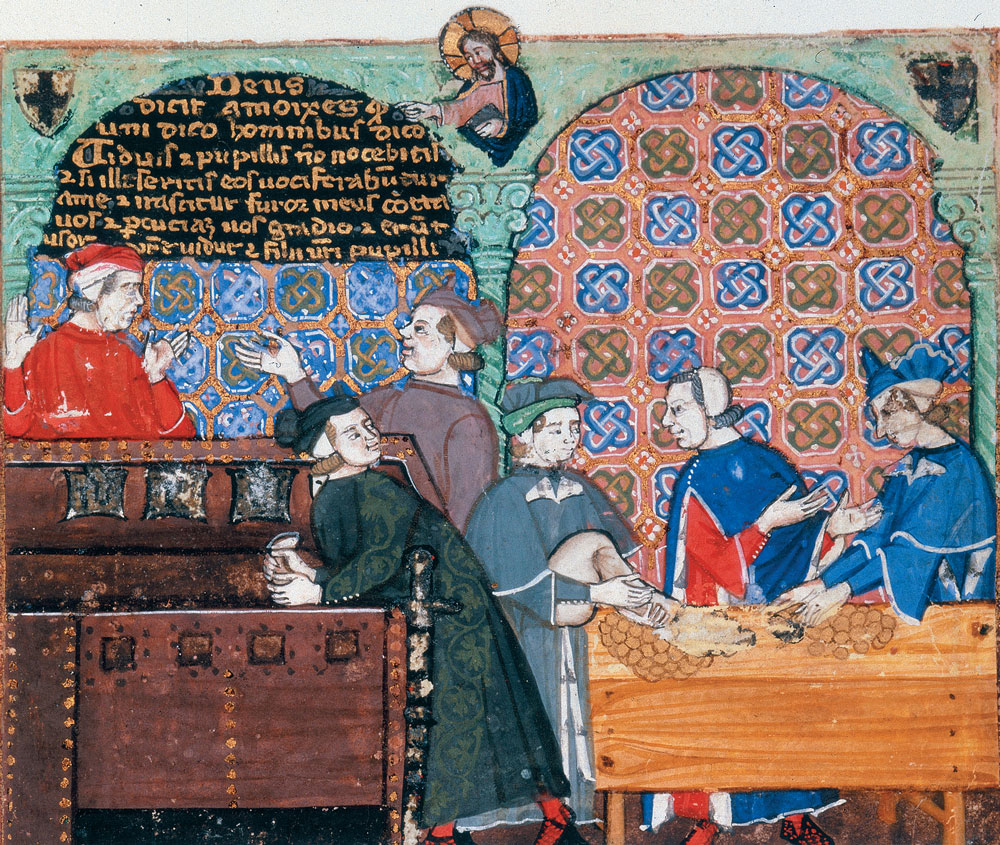 Deus
dicit amoixes q
uni dico hominibus dico
Uiduis ⁊ pupillis nõ nocebitis
⁊ si illeseritis eos uociferabũtur
ame ⁊ irascitur furor meus cõtra
uos ⁊ ꝑcuciaꝫ uos gradio ⁊ erũt
⁊ filii uri pupilli